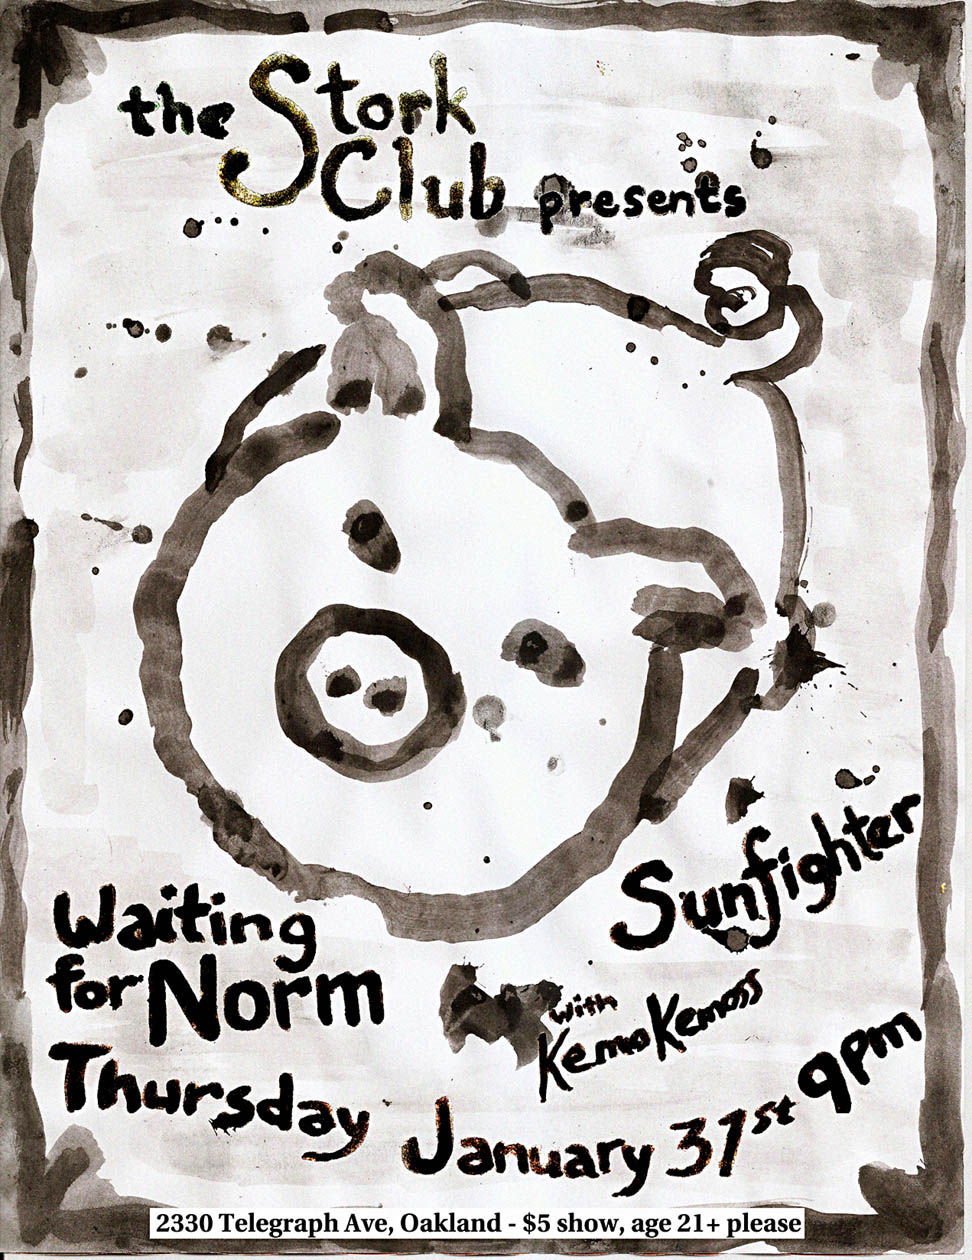 the Stork
Club presents
Sunfighter
Waiting
for Norm
with
Kemo Kemoss
Thursday
January 31st 9pm
2330 Telegraph Ave, Oakland - $5 show, age 21+ please